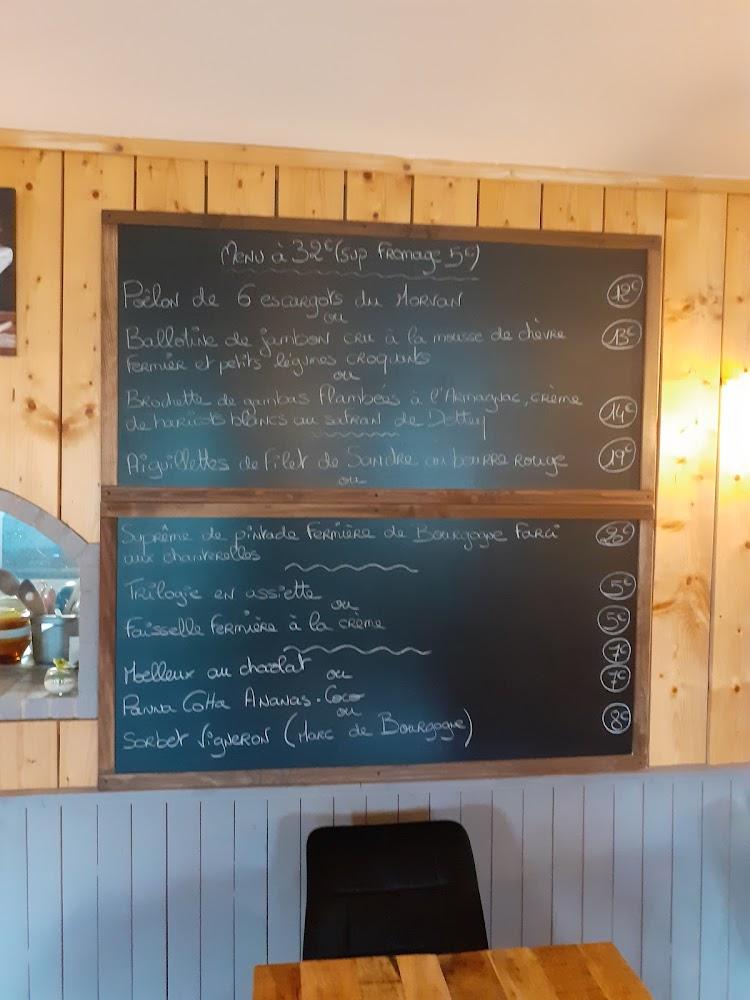 Menu à 32€ (sup Fromage 5€)
Poêlon de 6 escargots du Morvan 12€
ou
Ballotine de jambon cru à la mousse de chèvre 13€
fermier et petits légumes croquants
ou
Brochette de gambas flambées à l'Armagnac, crème
de haricots blancs au safran de 14€
Aiguillettes de Filet de Sandre au beurre rouge 19€
ou
Suprême de pintade fermière de Bourgogne Farci
aux chanterelles
Trilogie en assiette 5€
ou
Faisselle fermière à la crème 5€
Moelleux au chocolat 7€
ou
Panna Cotta Ananas-Coco 7€
ou
Sorbet Vigneron (Marc de Bourgogne) 8€